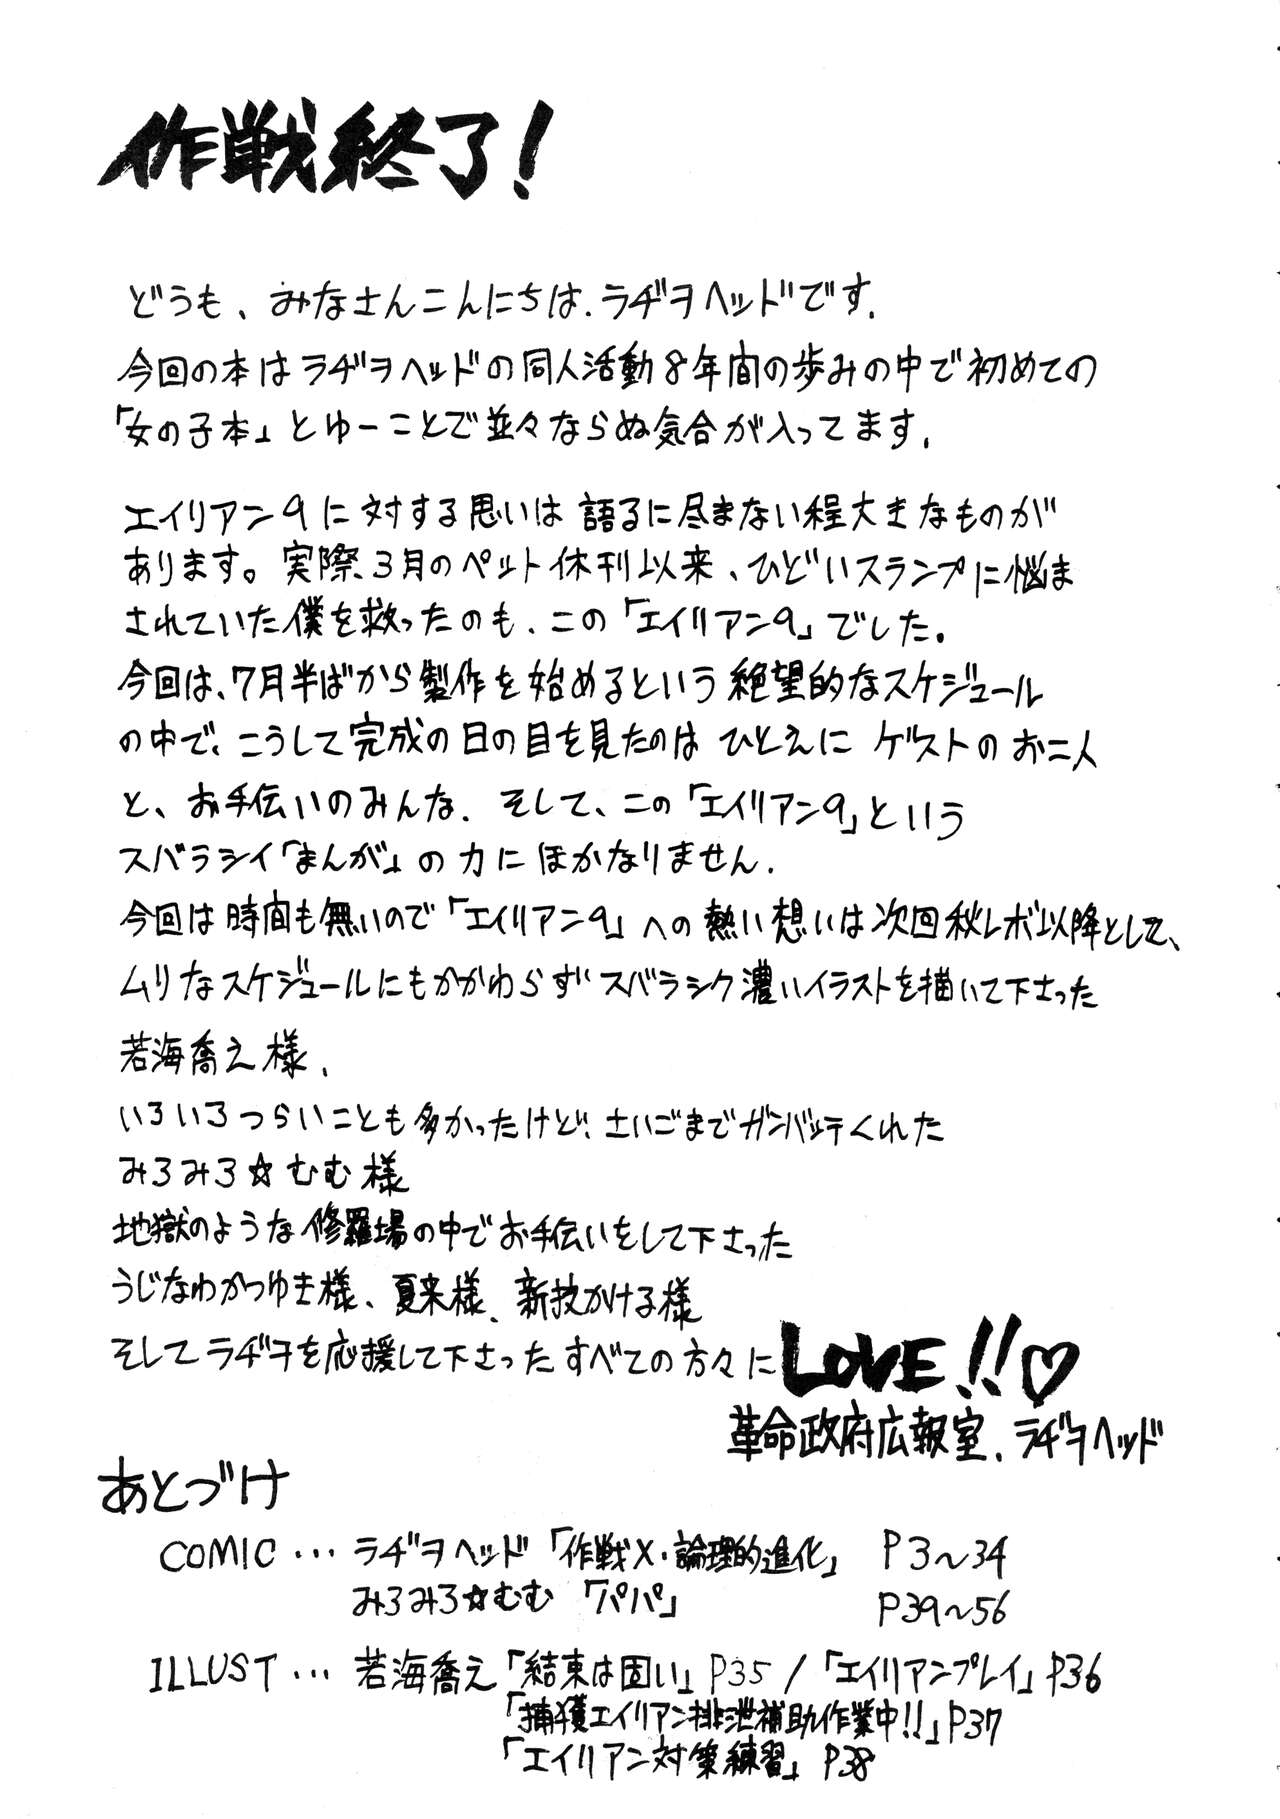 作戦終了!
どうも、みなさんこんにちは.ラヂヲヘッドです.
今回の本はラヂヲヘッドの同人活動8年間の歩みの中で初めての
「女の子本」とゆーことで並々ならぬ気合が入ってます.
エイリアン9に対する思いは語るに尽まない程大きなものが
あります。実際、3月のペット休刊以来、ひどいスランプに悩ま
されていた僕を救ったのも、この「エイリアン9」でした.
今回は、7月半ばから製作を始めるという絶望的なスケジュール
の中で、こうして完成の日の目を見たのはひとえにゲストのお二人
と、お手伝いのみんな.そして、この「エイリアン9」という
スバラシイ「まんが」の力にほかなりません.
今回は時間も無いので「エイリアン9」への熱い想いは次回秋レボ以降として、
ムリなスケジュールにもかかわらずスバラシク濃いイラストを描いて下さった
若海喬え様、
いろいろつらいことも多かったけど、さいごまでガンバッテくれた
みろみろ☆むむ様
地獄のような修羅場の中でお手伝いをして下さった
うじなわかつゆき様、夏来様、新技かける様
そしてラヂヲを応援して下さったすべての方々にLOVE!!♡
革命政府広報室、ラヂヲヘッド
あとづけ
COMIC…ラヂヲヘッド「作戦X・論理的進化」 P3～34
みろみろ☆むむ「パパ」 P39～56
ILLUST…若海喬え「結束は固い」P35/「エイリアンプレイ」P36
「捕獲エイリアン排泄補助作業中!!」P37
「エイリアン対策練習」P38